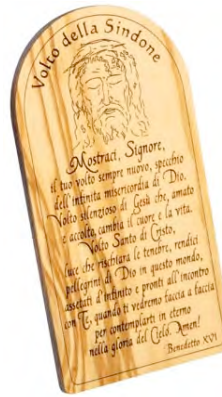 Volto della Sindone
Mostraci, Signore,
il tuo volto sempre nuovo, specchio
dell'infinita misericordia di Dio.
Volto silenzioso di Gesù che, amato
e accolto, cambia il cuore e la vita.
Volto Santo di Cristo,
luce che rischiara le tenebre, rendici
pellegrini di Dio in questo mondo,
assetati d'Infinito e pronti all'incontro
con Te, quando ti vedremo faccia a faccia
per contemplarti in eterno
nella gloria del Cielo. Amen!
Benedetto XVI